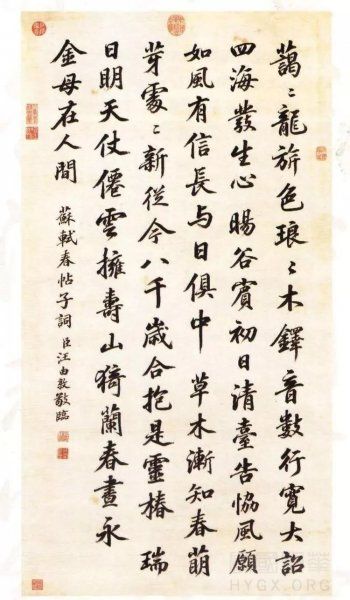 藹〻龍旂色琅〻木鐸音數行寬大詔
四海發生心暘谷賓初日清臺告協風願
如風有信長与日俱中 草木漸知春萌
芽處〻新從今八千歲合抱是靈椿 瑞
日明天仗僊雲擁壽山猗蘭春晝永
金母在人間
蘇軾春帖子詞 臣汪由敦敬臨
HYGX.ORG